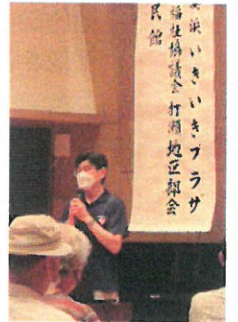 美浜いきいきプラザ
福祉協議会 打瀬地区部会
民館